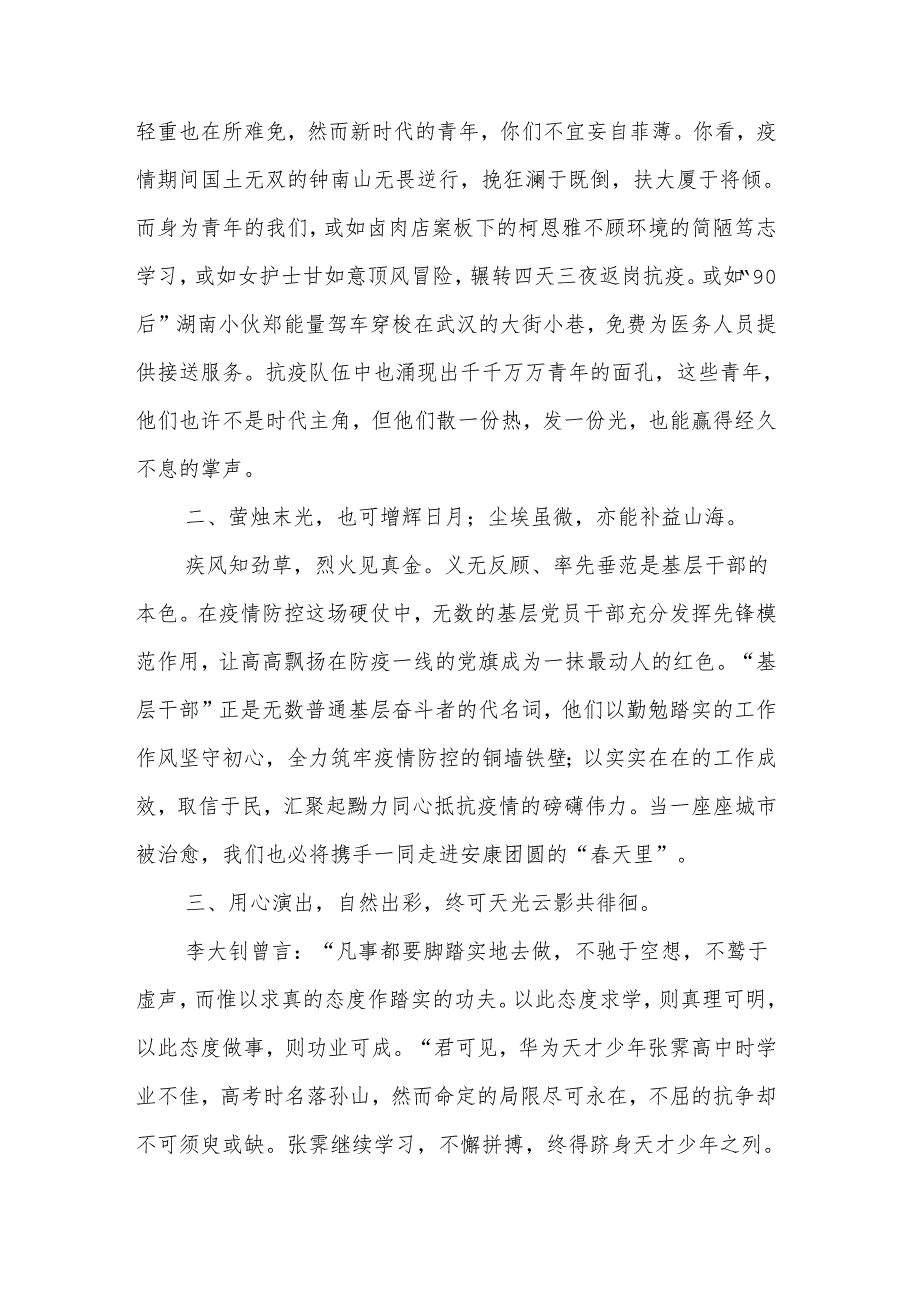 轻重也在所难免，然而新时代的青年，你们不宜妄自菲薄。你看，疫
情期间国士无双的钟南山无畏逆行，挽狂澜于既倒，扶大厦于将倾。
而身为青年的我们，或如卤肉店案板下的柯恩雅不顾环境的简陋笃志
学习，或如女护士甘如意顶风冒险，辗转四天三夜返岗抗疫。或如“90
后”湖南小伙郑能量驾车穿梭在武汉的大街小巷，免费为医务人员提
供接送服务。抗疫队伍中也涌现出千千万万青年的面孔，这些青年，
他们也许不是时代主角，但他们散一份热，发一份光，也能赢得经久
不息的掌声。
二、萤烛末光，也可增辉日月；尘埃虽微，亦能补益山海。
疾风知劲草，烈火见真金。义无反顾、率先垂范是基层干部的
本色。在疫情防控这场硬仗中，无数的基层党员干部充分发挥先锋模
范作用，让高高飘扬在防疫一线的党旗成为一抹最动人的红色。“基
层干部”正是无数普通基层奋斗者的代名词，他们以勤勉踏实的工作
作风坚守初心，全力筑牢疫情防控的铜墙铁壁；以实实在在的工作成
效，取信于民，汇聚起黝力同心抵抗疫情的磅礴伟力。当一座座城市
被治愈，我们也必将携手一同走进安康团圆的“春天里”。
三、用心演出，自然出彩，终可天光云影共徘徊。
李大钊曾言：“凡事都要脚踏实地去做，不驰于空想，不鹜于
虚声，而惟以求真的态度作踏实的功夫。以此态度求学，则真理可明，
以此态度做事，则功业可成。“君可见，华为天才少年张霁高中时学
业不佳，高考时名落孙山，然而命定的局限尽可永在，不屈的抗争却
不可须臾或缺。张霁继续学习，不懈拼搏，终得跻身天才少年之列。